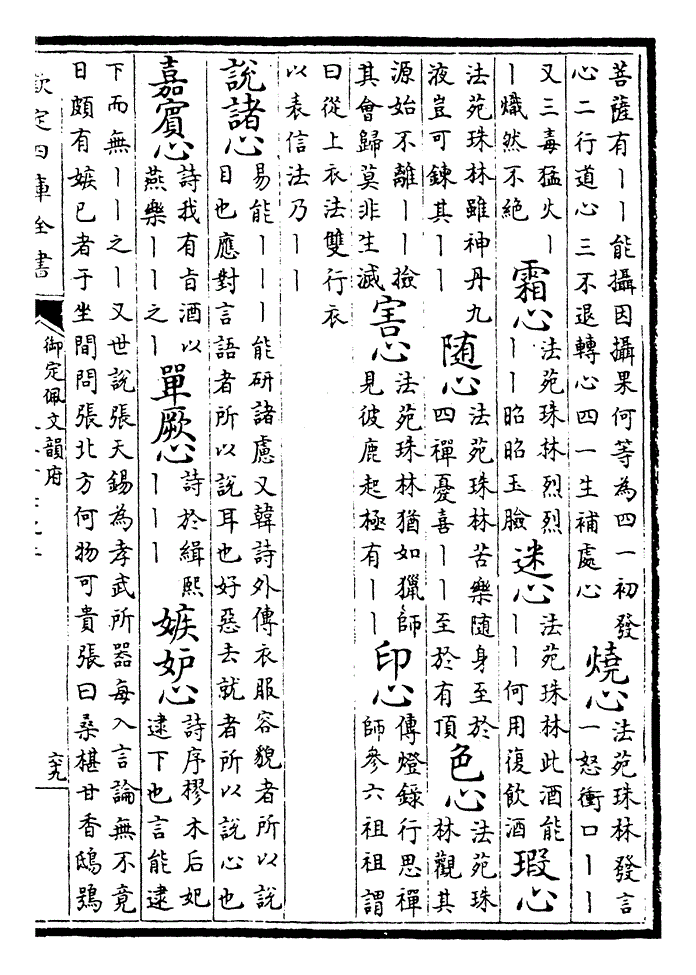 菩薩有丨丨能攝因攝果何等為四一初發
心二行道心三不退轉心四一生補處心
燒心
法苑珠林發言
一怒衝口丨丨
又三毒猛火丨
丨熾然不絶
霜心
法苑珠林烈烈
丨丨昭昭玉臉
迷心
法苑珠林此酒能
丨丨何用復飲酒
瑕心
法苑珠林雖神丹九
液豈可鍊其丨丨
随心
法苑珠林苦樂隨身至於
四禪憂喜丨丨至於有頂
色心
法苑珠
林觀其
源始不離丨丨撿
其會歸莫非生滅
害心
法苑珠林猶如獵師
見彼鹿起極有丨丨
印心
傳燈錄行思禪
師參六祖祖謂
曰從上衣法雙行衣
以表信法乃丨丨
說諸心
易能丨丨丨能研諸慮又韓詩外傳衣服容貌者所以說
目也應對言語者所以說耳也好惡去就者所以說心也
嘉賓心
詩我有旨酒以
燕樂丨丨之丨
單厥心
詩於緝熙
丨丨丨
嫉妒心
詩序樛木后妃
逮下也言能逮
下而無丨丨之丨又世說張天錫為孝武所器每入言論無不竟
日頗有嫉己者于坐間問張北方何物可貴張曰桑椹甘香鴟鴞
欽定四庫全書
御定佩文韻府
六十九